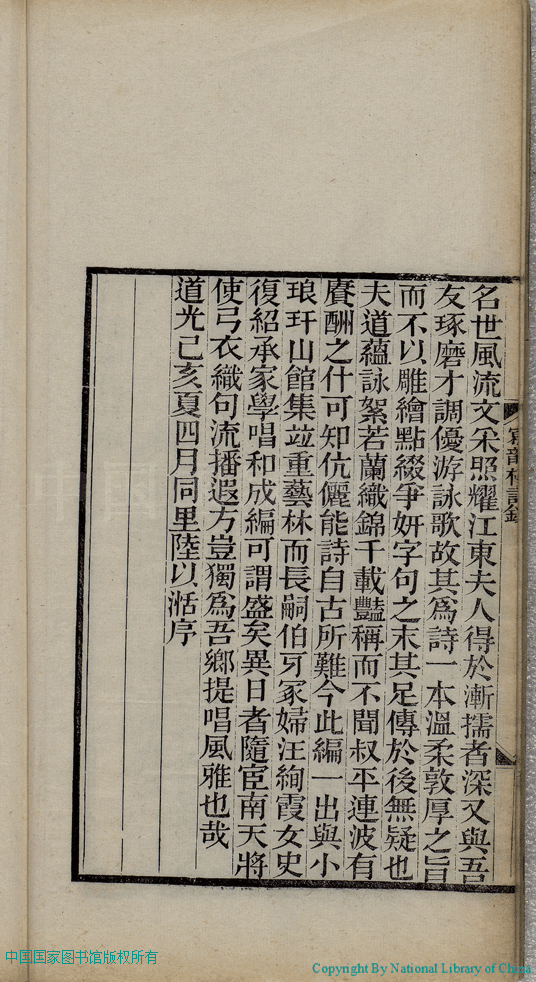 名世風流文采照耀江東夫人得於漸擩者深又與吾
友琢磨才調優游詠歌故其爲詩一本溫柔敦厚之旨
而不以雕繪點綴爭妍字句之末其足傳於後無疑也
夫道蘊詠絮若蘭織錦千載豔稱而不聞叔平連波有
賡酬之什可知伉儷能詩自古所難今此編一出與小
琅玕山館集竝重藝林而長嗣伯牙冢婦汪絢霞女史
復紹承家學唱和成編可謂盛矣異日者隨宦南天將
使弓衣織句流播遐方豈獨爲吾鄉提唱風雅也哉
道光己亥夏四月同里陸以湉序
中国国家图书馆版权所有
Copyright By National Library of China